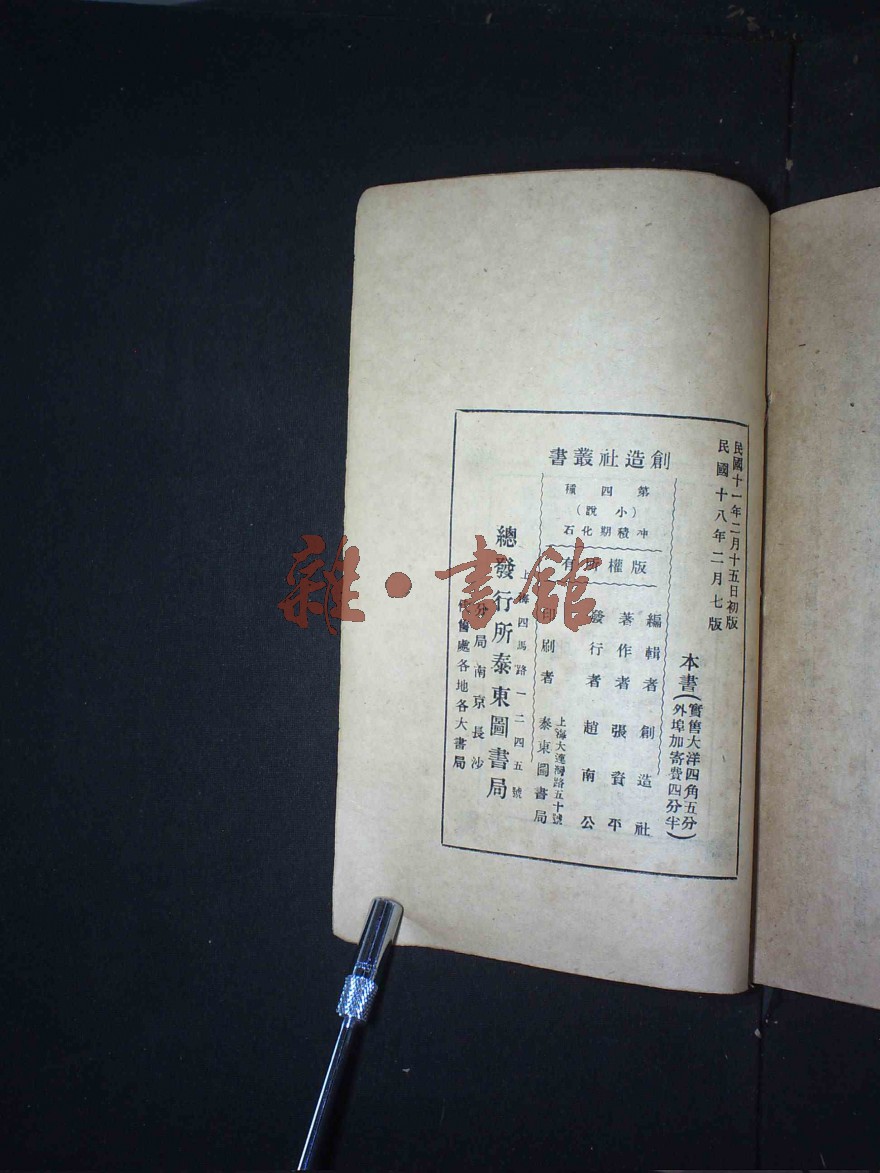 民國十一年二月十五日初版
民國十八年二月七版
本書(實售大洋四角五分
外埠加寄費四分半)
創造社叢書
第四種
(小說)
冲積期化石
版權所有
編輯者 創造社
著作者 張資平
發行者 趙南公
印刷者 上海大連灣路五十號
泰東圖書局
上海四馬路一二四五號
總發行所泰東圖書局
分局南京長沙
售處各地各大書局
雜·書館